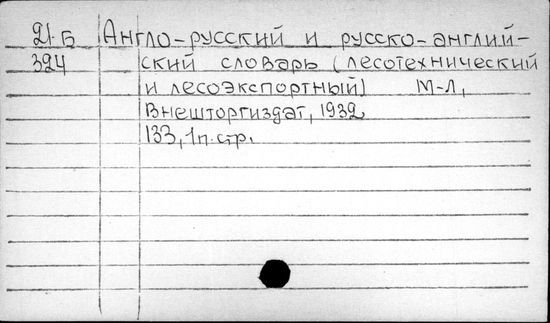 21-Б Англо-русский и русско-англий-
324 ский словарь (лесотехнический
и лесоэкспортный) М-Л,
Внешторгиздат, 1932
133, 1п. стр.